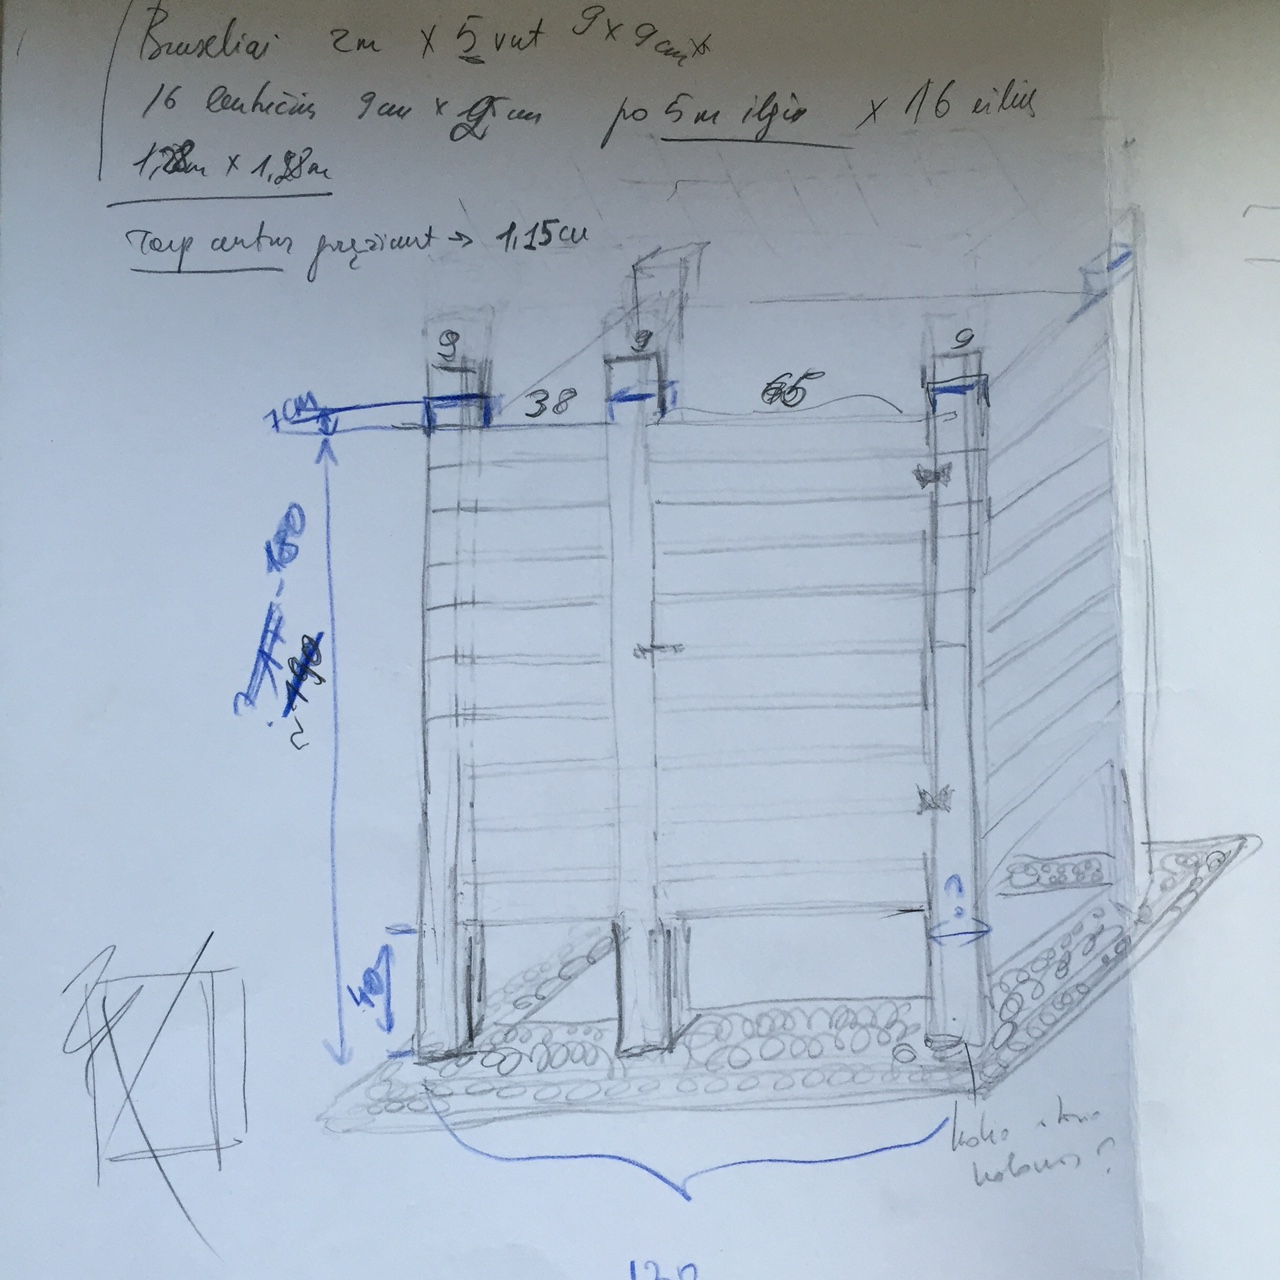 Bruseliai 2m x 5 vnt 9x9cm
16 lentučių 9cm x 2 cm po 5m ilgio x 16 eilių
1,28m x 1,28m
Tarp centrų gręžiant → 1,15cm
9 9 9
7cm 38 65
~180
~190
40
?
koko storio
kolonos?
120